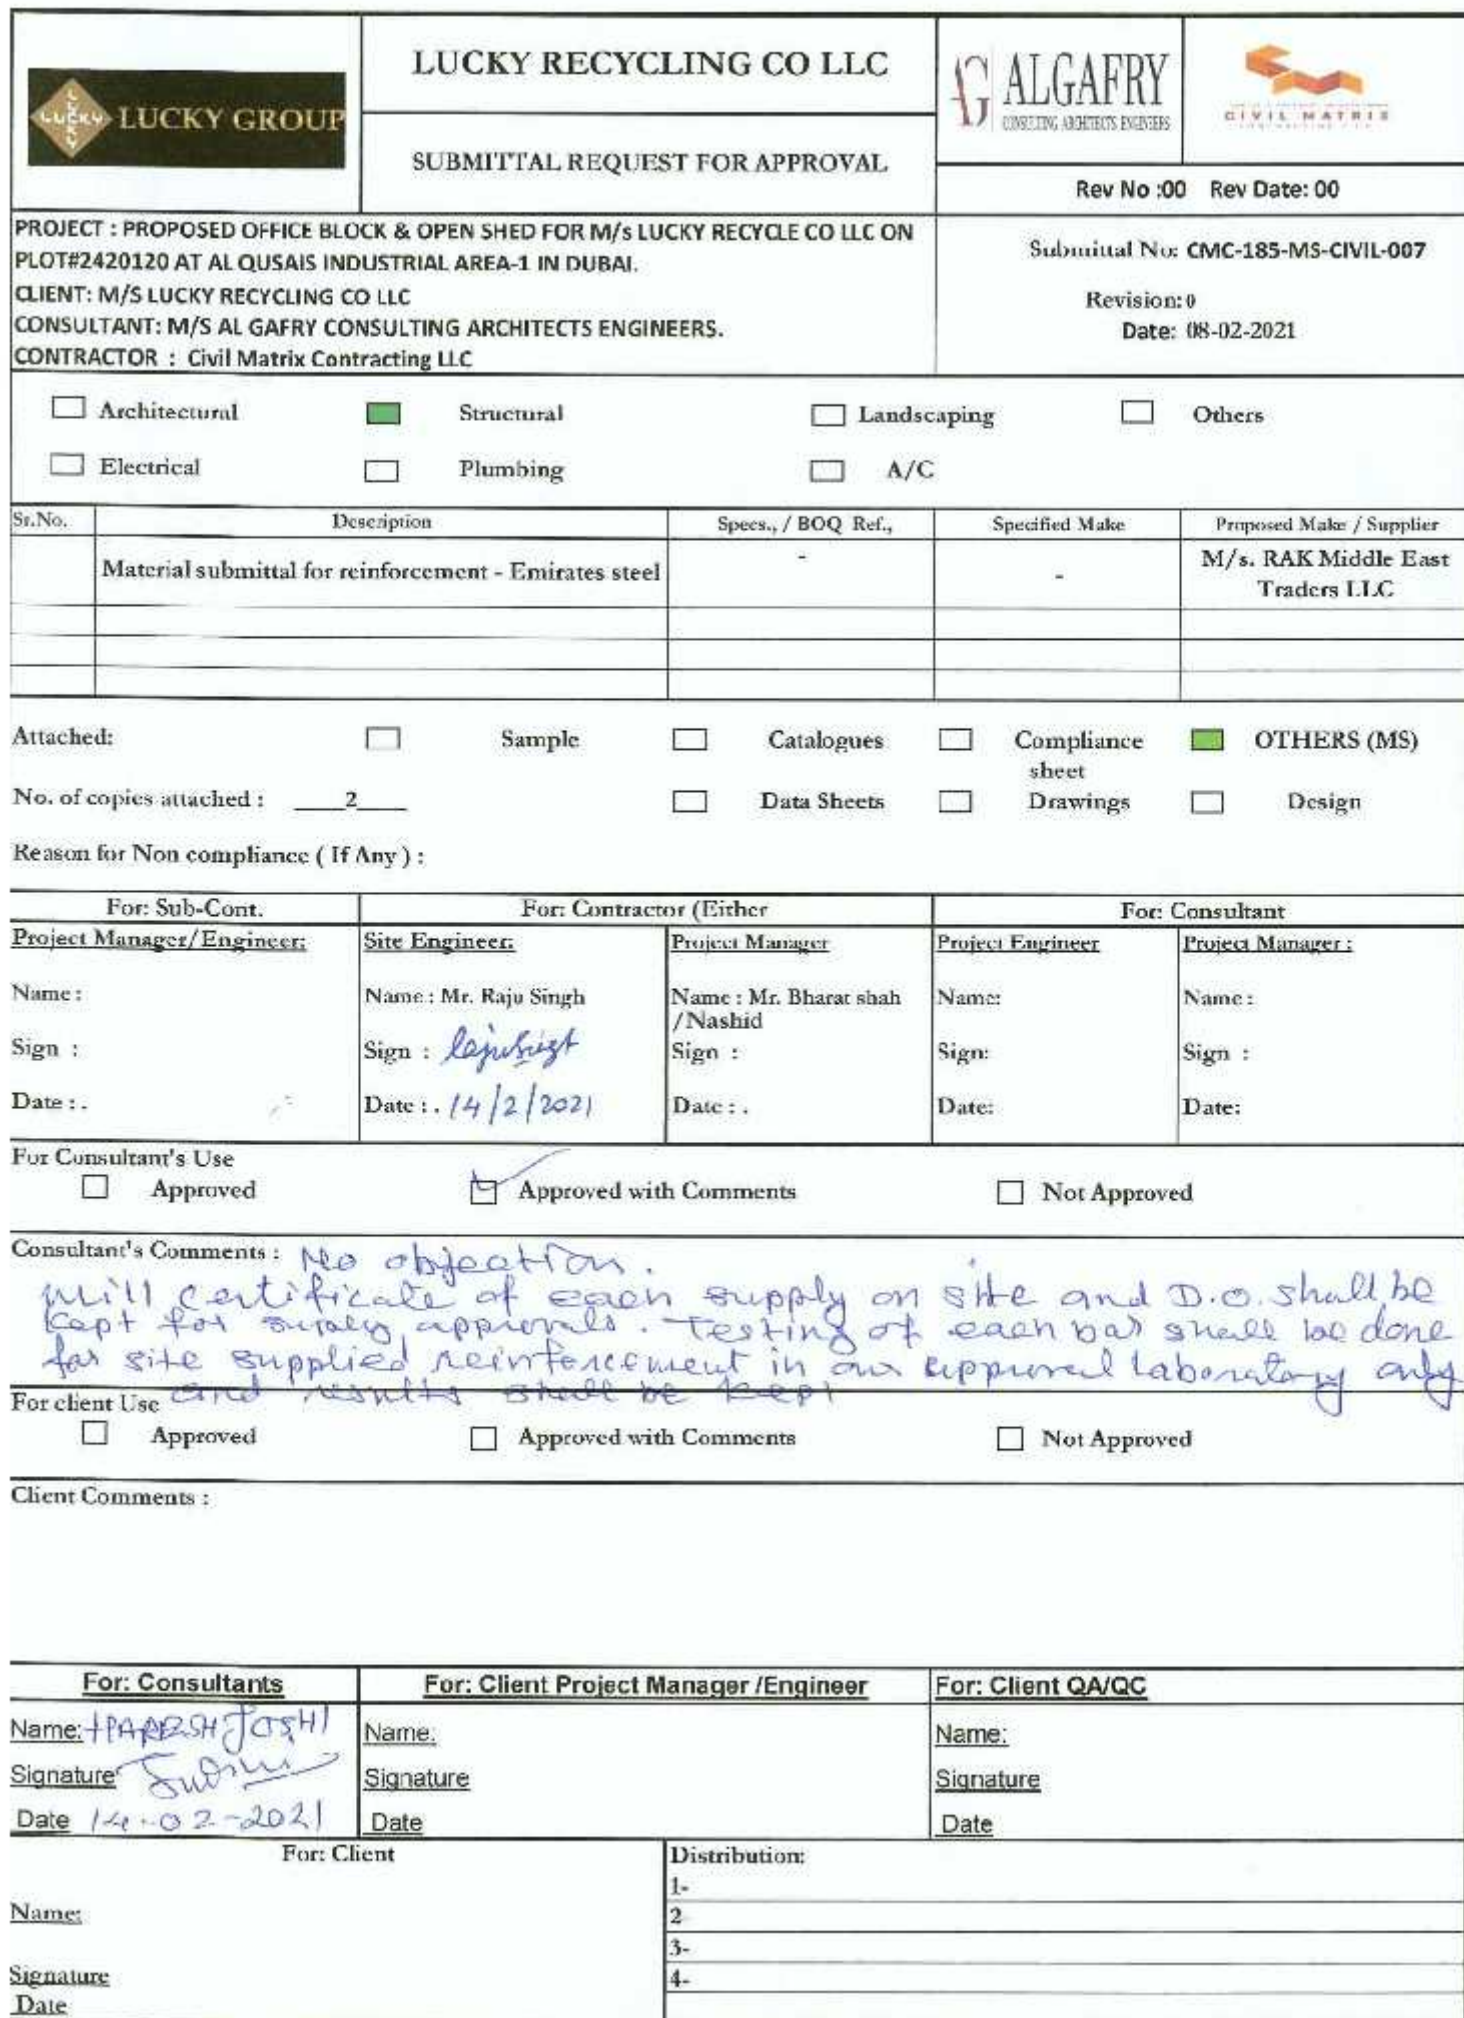 LUCKY GROUP
LUCKY
LUCKY RECYCLING CO LLC
SUBMITTAL REQUEST FOR APPROVAL
AG ALGAFRY
CONSULTING ARCHITECTS ENGINEERS
CIVIL MATRIX
Rev No :00 Rev Date: 00
PROJECT : PROPOSED OFFICE BLOCK & OPEN SHED FOR M/s LUCKY RECYCLE CO LLC ON
PLOT#2420120 AT AL QUSAIS INDUSTRIAL AREA-1 IN DUBAI.
CLIENT: M/S LUCKY RECYCLING CO LLC
CONSULTANT: M/S AL GAFRY CONSULTING ARCHITECTS ENGINEERS.
CONTRACTOR : Civil Matrix Contracting LLC
Submittal No: CMC-185-MS-CIVIL-007
Revision: 0
Date: 08-02-2021
Architectural Structural Landscaping Others
Electrical Plumbing A/C
Sr.No. Description Specs., / BOQ Ref., Specified Make Proposed Make / Supplier
Material submittal for reinforcement - Emirates steel - - M/s. RAK Middle East
Traders LLC
Attached: Sample Catalogues Compliance OTHERS (MS)
sheet
No. of copies attached : ____2____ Data Sheets Drawings Design
Reason for Non compliance ( If Any ) :
For: Sub-Cont. For: Contractor (Either For: Consultant
Project Manager/Engineer: Site Engineer: Project Manager Project Engineer Project Manager :
Name : Name : Mr. Raju Singh Name : Mr. Bharat shah Name: Name :
/Nashid
Sign : Sign : Sign : Sign: Sign :
Date : . Date : . 14/2/2021 Date : . Date: Date:
For Consultant's Use
Approved Approved with Comments Not Approved
Consultant's Comments : No objection.
Mill certificate of each supply on site and D.O. shall be
kept for approvals. Testing of each bar shall be done
for site supplied reinforcement in our approval laboratory only
and results shall be kept
For client Use
Approved Approved with Comments Not Approved
Client Comments :
For: Consultants For: Client Project Manager /Engineer For: Client QA/QC
Name: PARESH JOSHI Name: Name:
Signature Signature Signature
Date 14-02-2021 Date Date
For: Client Distribution:
1-
Name: 2
3-
Signature 4-
Date